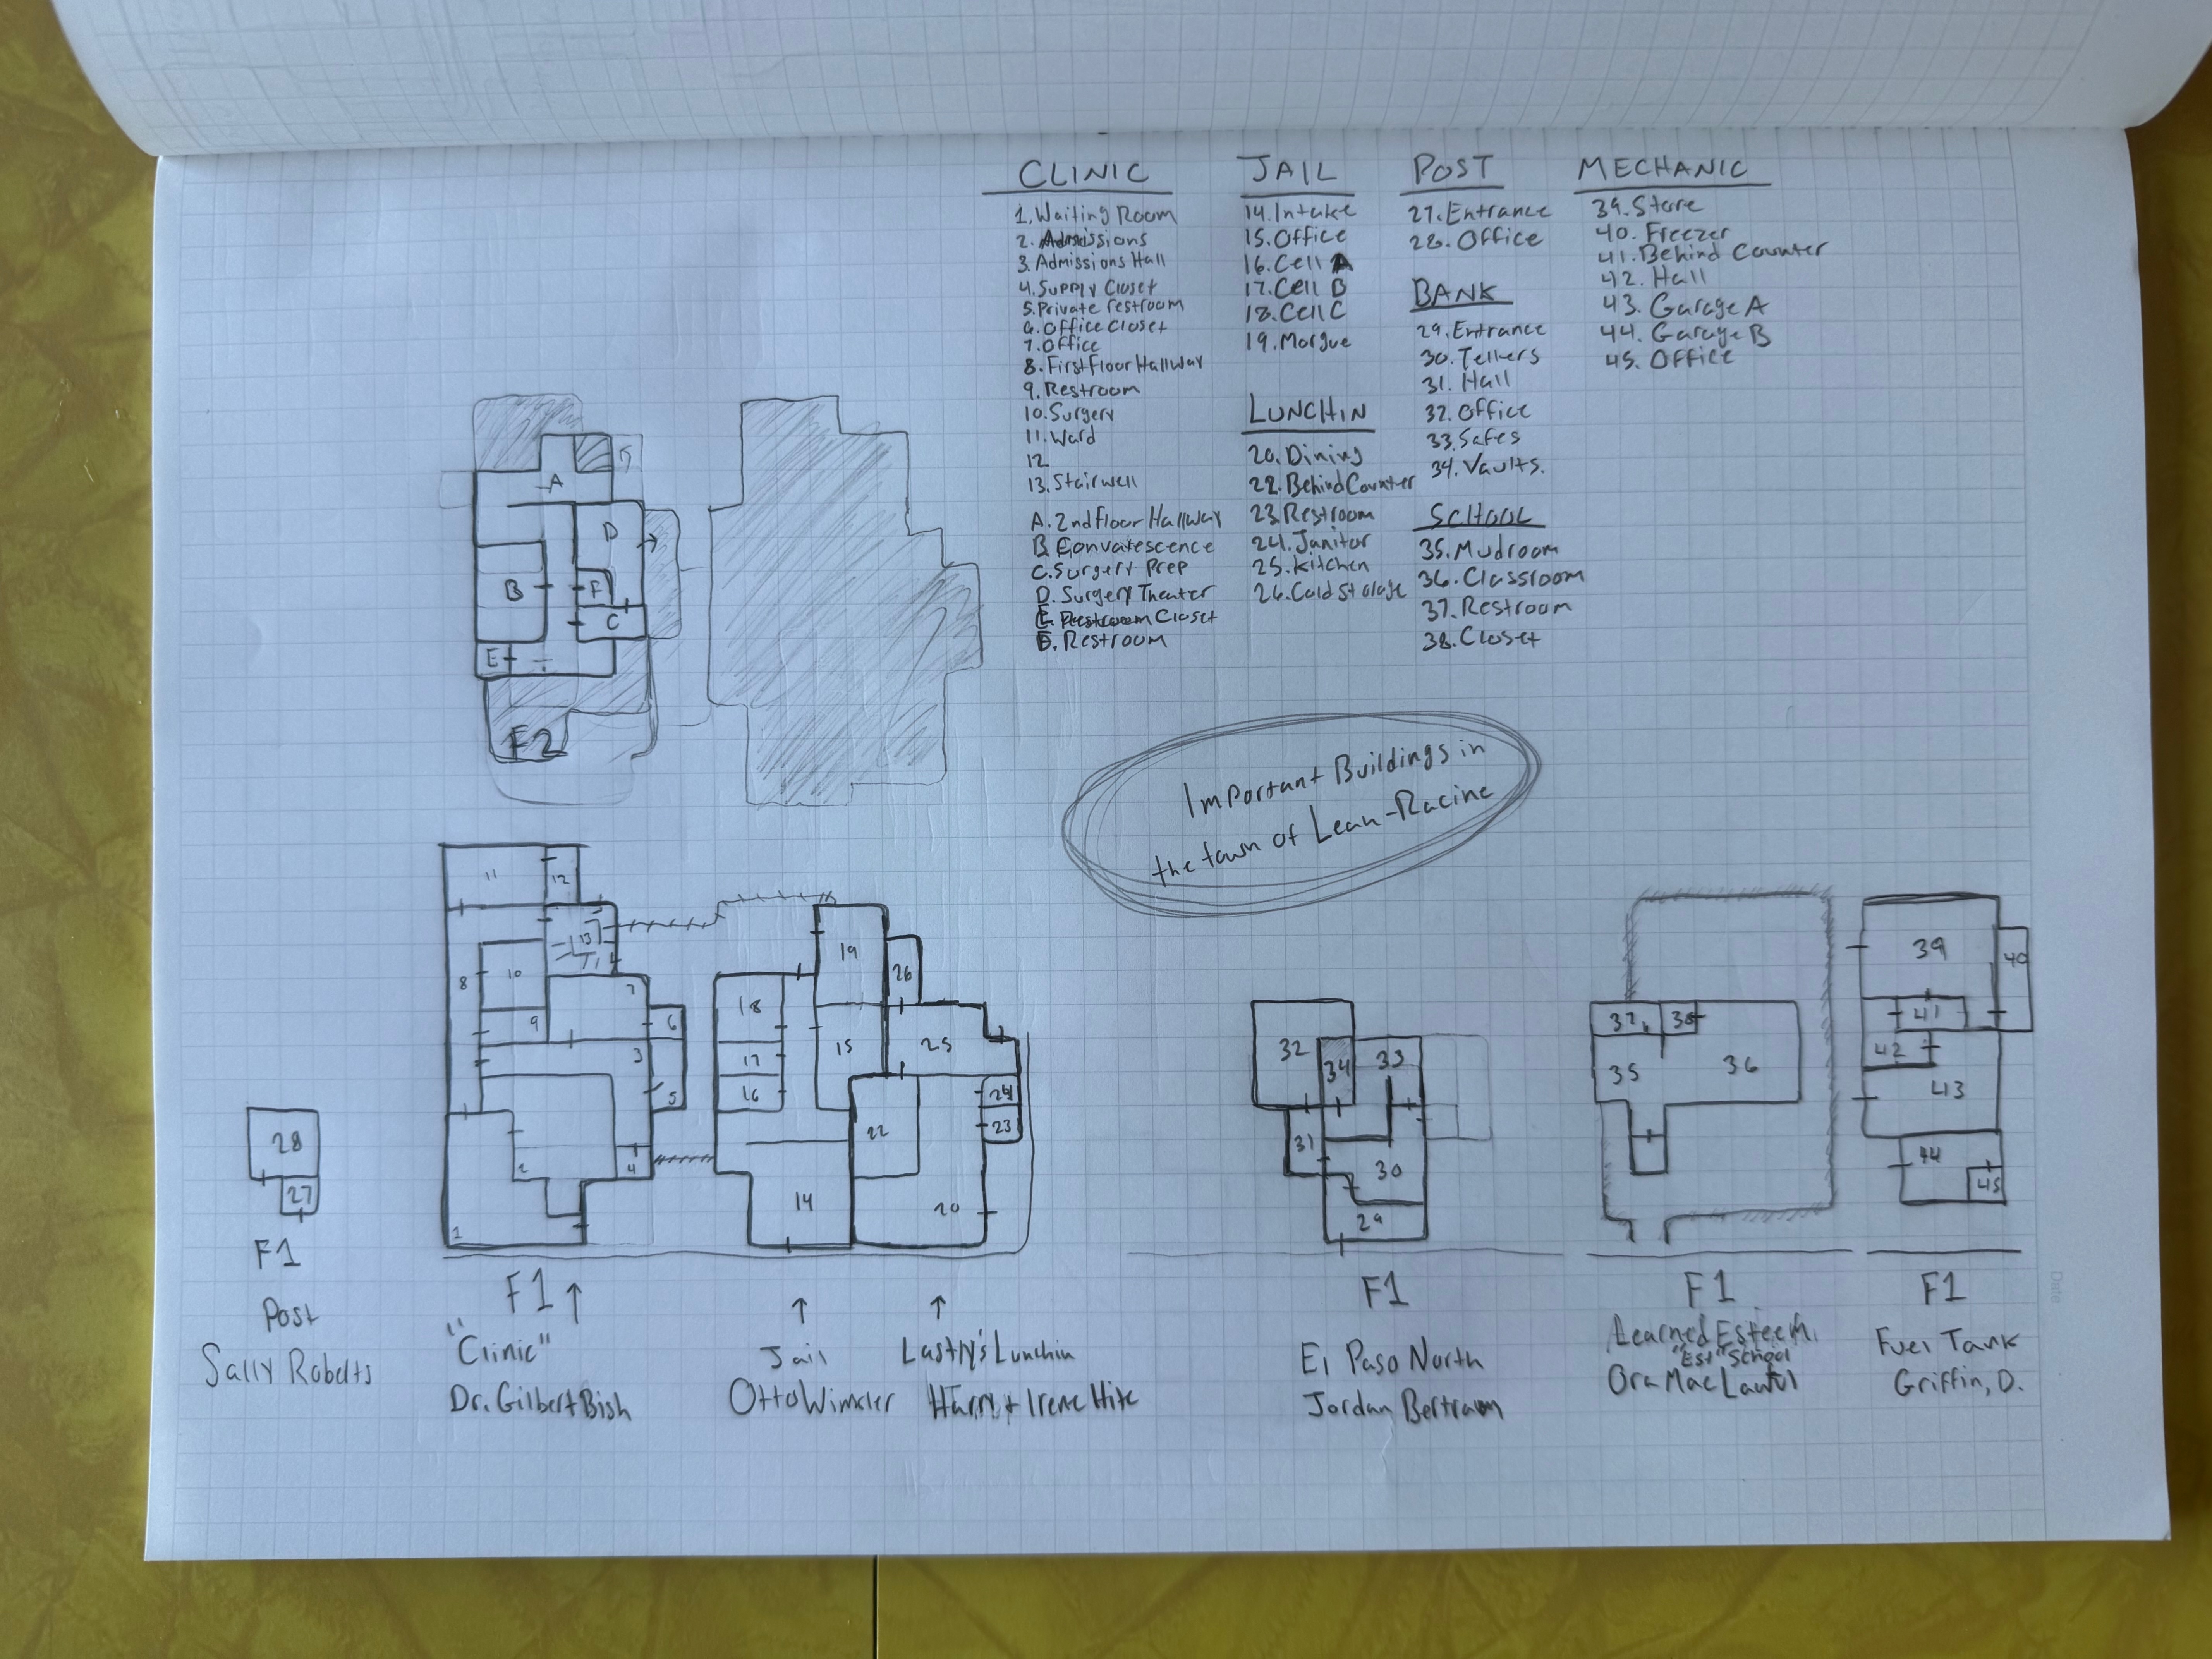 CLINIC
1. Waiting Room
2. Admissions
3. Admissions Hall
4. Supply Closet
5. Private restroom
6. Office Closet
7. Office
8. First Floor Hallway
9. Restroom
10. Surgery
11. Ward
12.
13. Stairwell
A. 2nd Floor Hallway
B. Convalescence
C. Surgery Prep
D. Surgery Theater
E. Closet
Restroom
JAIL
14. Intake
15. Office
16. Cell A
17. Cell B
18. Cell C
19. Morgue
LUNCHIN
20. Dining
22. Behind Counter
23. Restroom
24. Janitor
25. Kitchen
26. Cold Storage
POST
27. Entrance
28. Office
BANK
29. Entrance
30. Tellers
31. Hall
32. Office
33. Safes
34. Vaults.
SCHOOL
35. Mudroom
36. Classroom
37. Restroom
38. Closet
MECHANIC
39. Store
40. Freezer
41. Behind Counter
42. Hall
43. Garage A
44. Garage B
45. Office
A
D
B
F
C
E
F2
Important Buildings in
the town of Lean-Racine
28
27
F1
Post
Sally Roberts
11
12
13
10
8
7
9
6
3
5
2
4
1
F1
"Clinic"
Dr. Gilbert Bish
19
18
17
15
16
14
Jail
Otto Winkler
26
25
24
23
22
20
Lastly's Lunchin
Harry + Irene Hite
32
34
33
31
30
29
F1
El Paso North
Jordan Bertram
37
38
35
36
F1
Learned Esteem.
"Est" School
Ora Mae Lawful
39
40
41
42
43
44
45
F1
Fuel Tank
Griffin, D.
Date